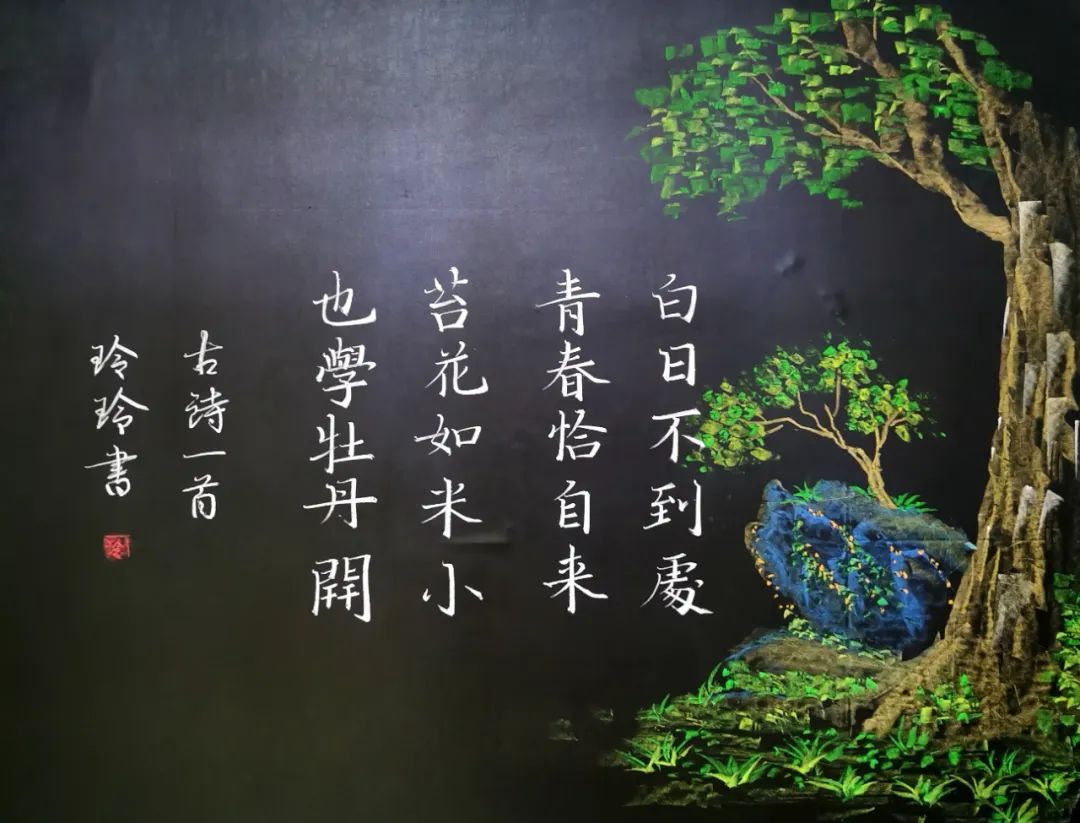 白日不到處
青春恰自来
苔花如米小
也學牡丹開
古詩一首
玲玲書
玲